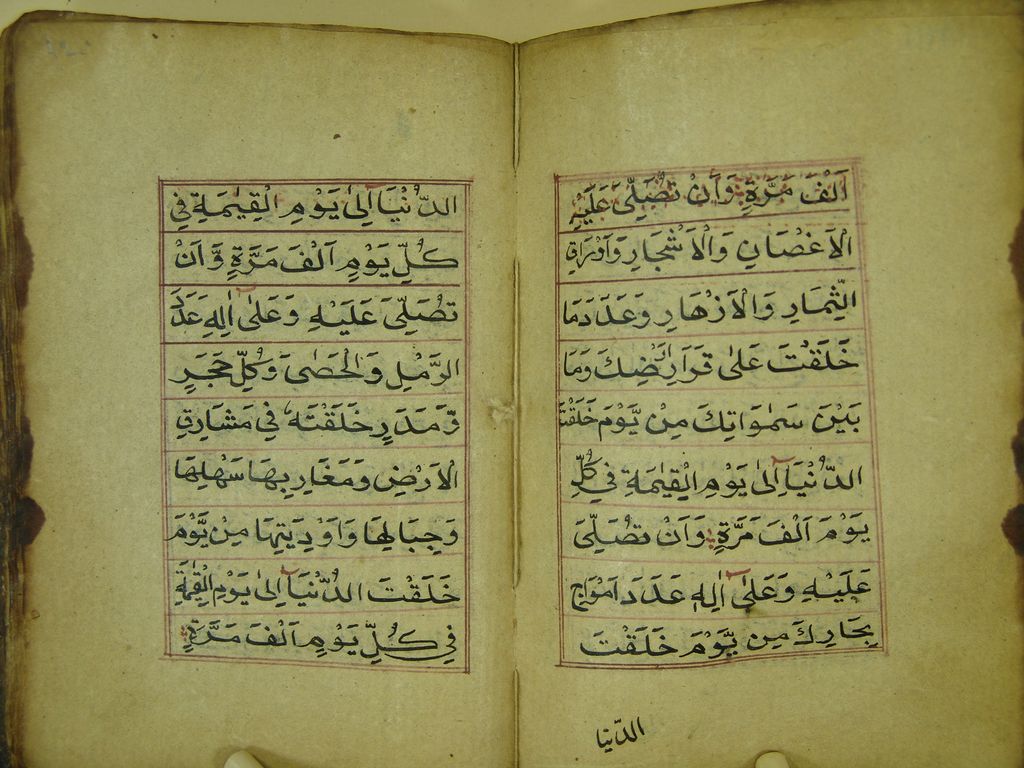 اَلْفَ مَرَّةٍ وَاَنْ تُصَلِّیَ عَلَیْهِ
الْاَغْصَانِ وَالْاَشْجَارِ وَاَوْرَاقِ
الثِّمَارِ وَالْاَزْهَارِ وَعَدَدَ مَا
خَلَقْتَ عَلٰی قَرَارِ اَرْضِكَ وَمَا
بَیْنَ سَمٰوَاتِكَ مِنْ یَّوْمَ خَلَقْتَ
الدُّنْیَا اِلٰی یَوْمِ الْقِیٰمَةِ فِی كُلِّ
یَوْمَ اَلْفَ مَرَّةٍ وَاَنْ تُصَلِّیَ
عَلَیْهِ وَعَلٰٓی اٰلِهٖ عَدَدَ اَمْوَاجِ
بِحَارِكَ مِن یَّوْمَ خَلَقْتَ
الدّنیا
الدُّنْیَا اِلٰی یَوْمِ الْقِیٰمَةِ فِی
كُلِّ یَوْمٍ اَلْفَ مَرَّةٍ وَّاَنْ
تُصَلِّیَ عَلَیْهِ وَعَلٰٓی اٰلِهٖ عَدَدَ
الرَّمْلِ وَالْحَصٰی وَكُلِّ حَجَرٍ
وَّمَدَرٍ خَلَقْتَهٗ فِی مَشَارِقِ
الْاَرْضِ وَمَغَارِبِهَا سَهْلِهَا
وَجِبَالِهَا وَاَوْدِیَتِهَا مِنْ یَّوْمَ
خَلَقْتَ الدُّنْیَا اِلٰی یَوْمِ الْقِیٰمَةِ
فِی كُلِّ یَوْمٍ اَلْفَ مَرَّةٍ